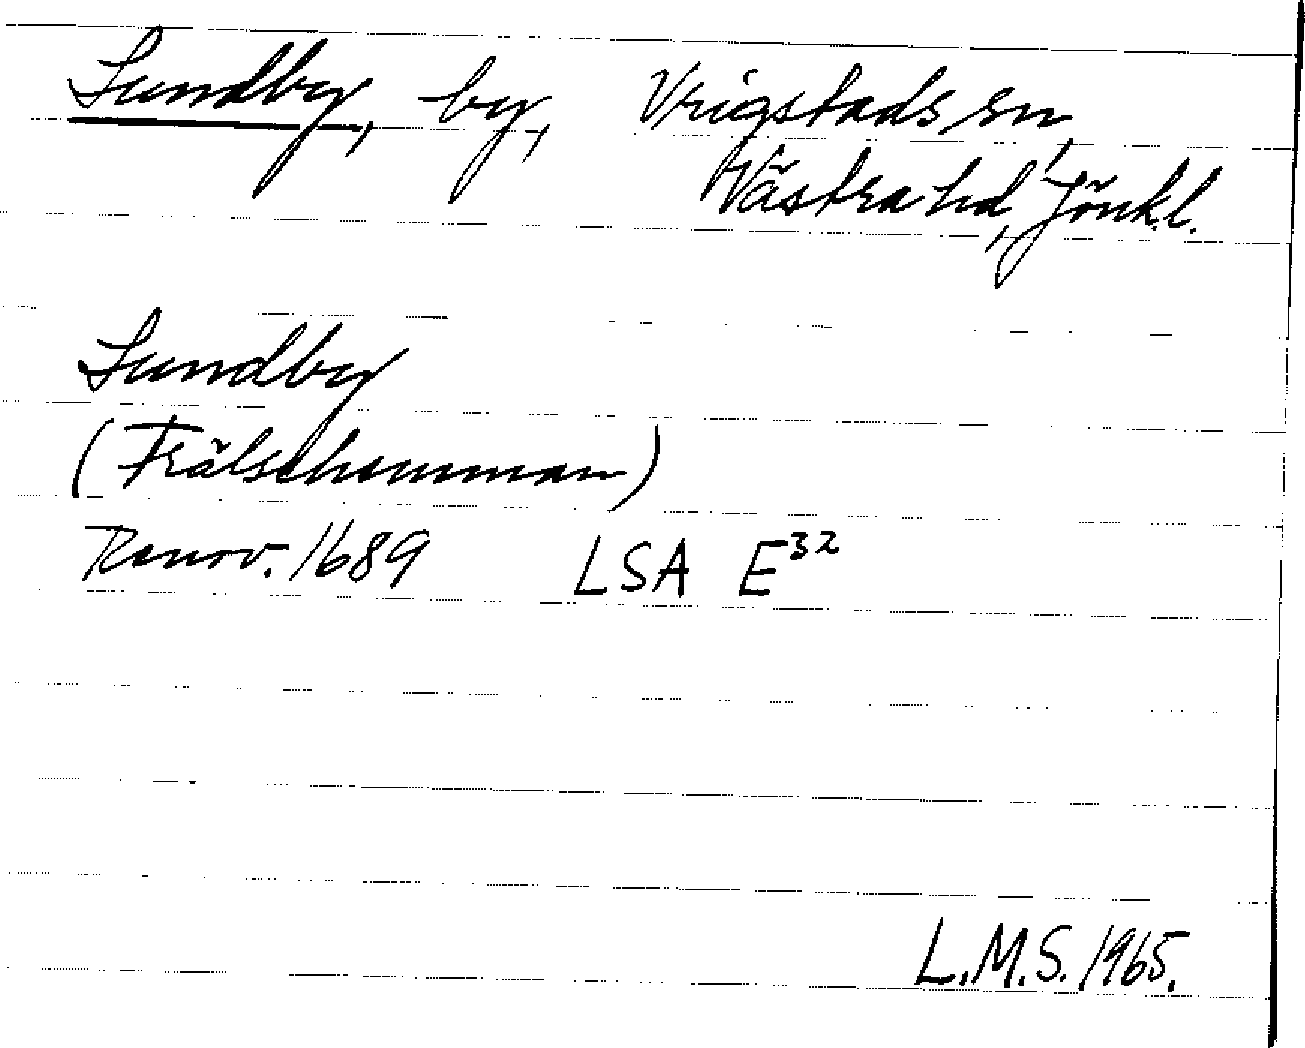 Lundby, by, Vrigstads sn,
Västra hd, Jönk.l.
Lundby
(Frälsehemman)
Renov. 1689 LSA E³²
L.M.S. 1965.